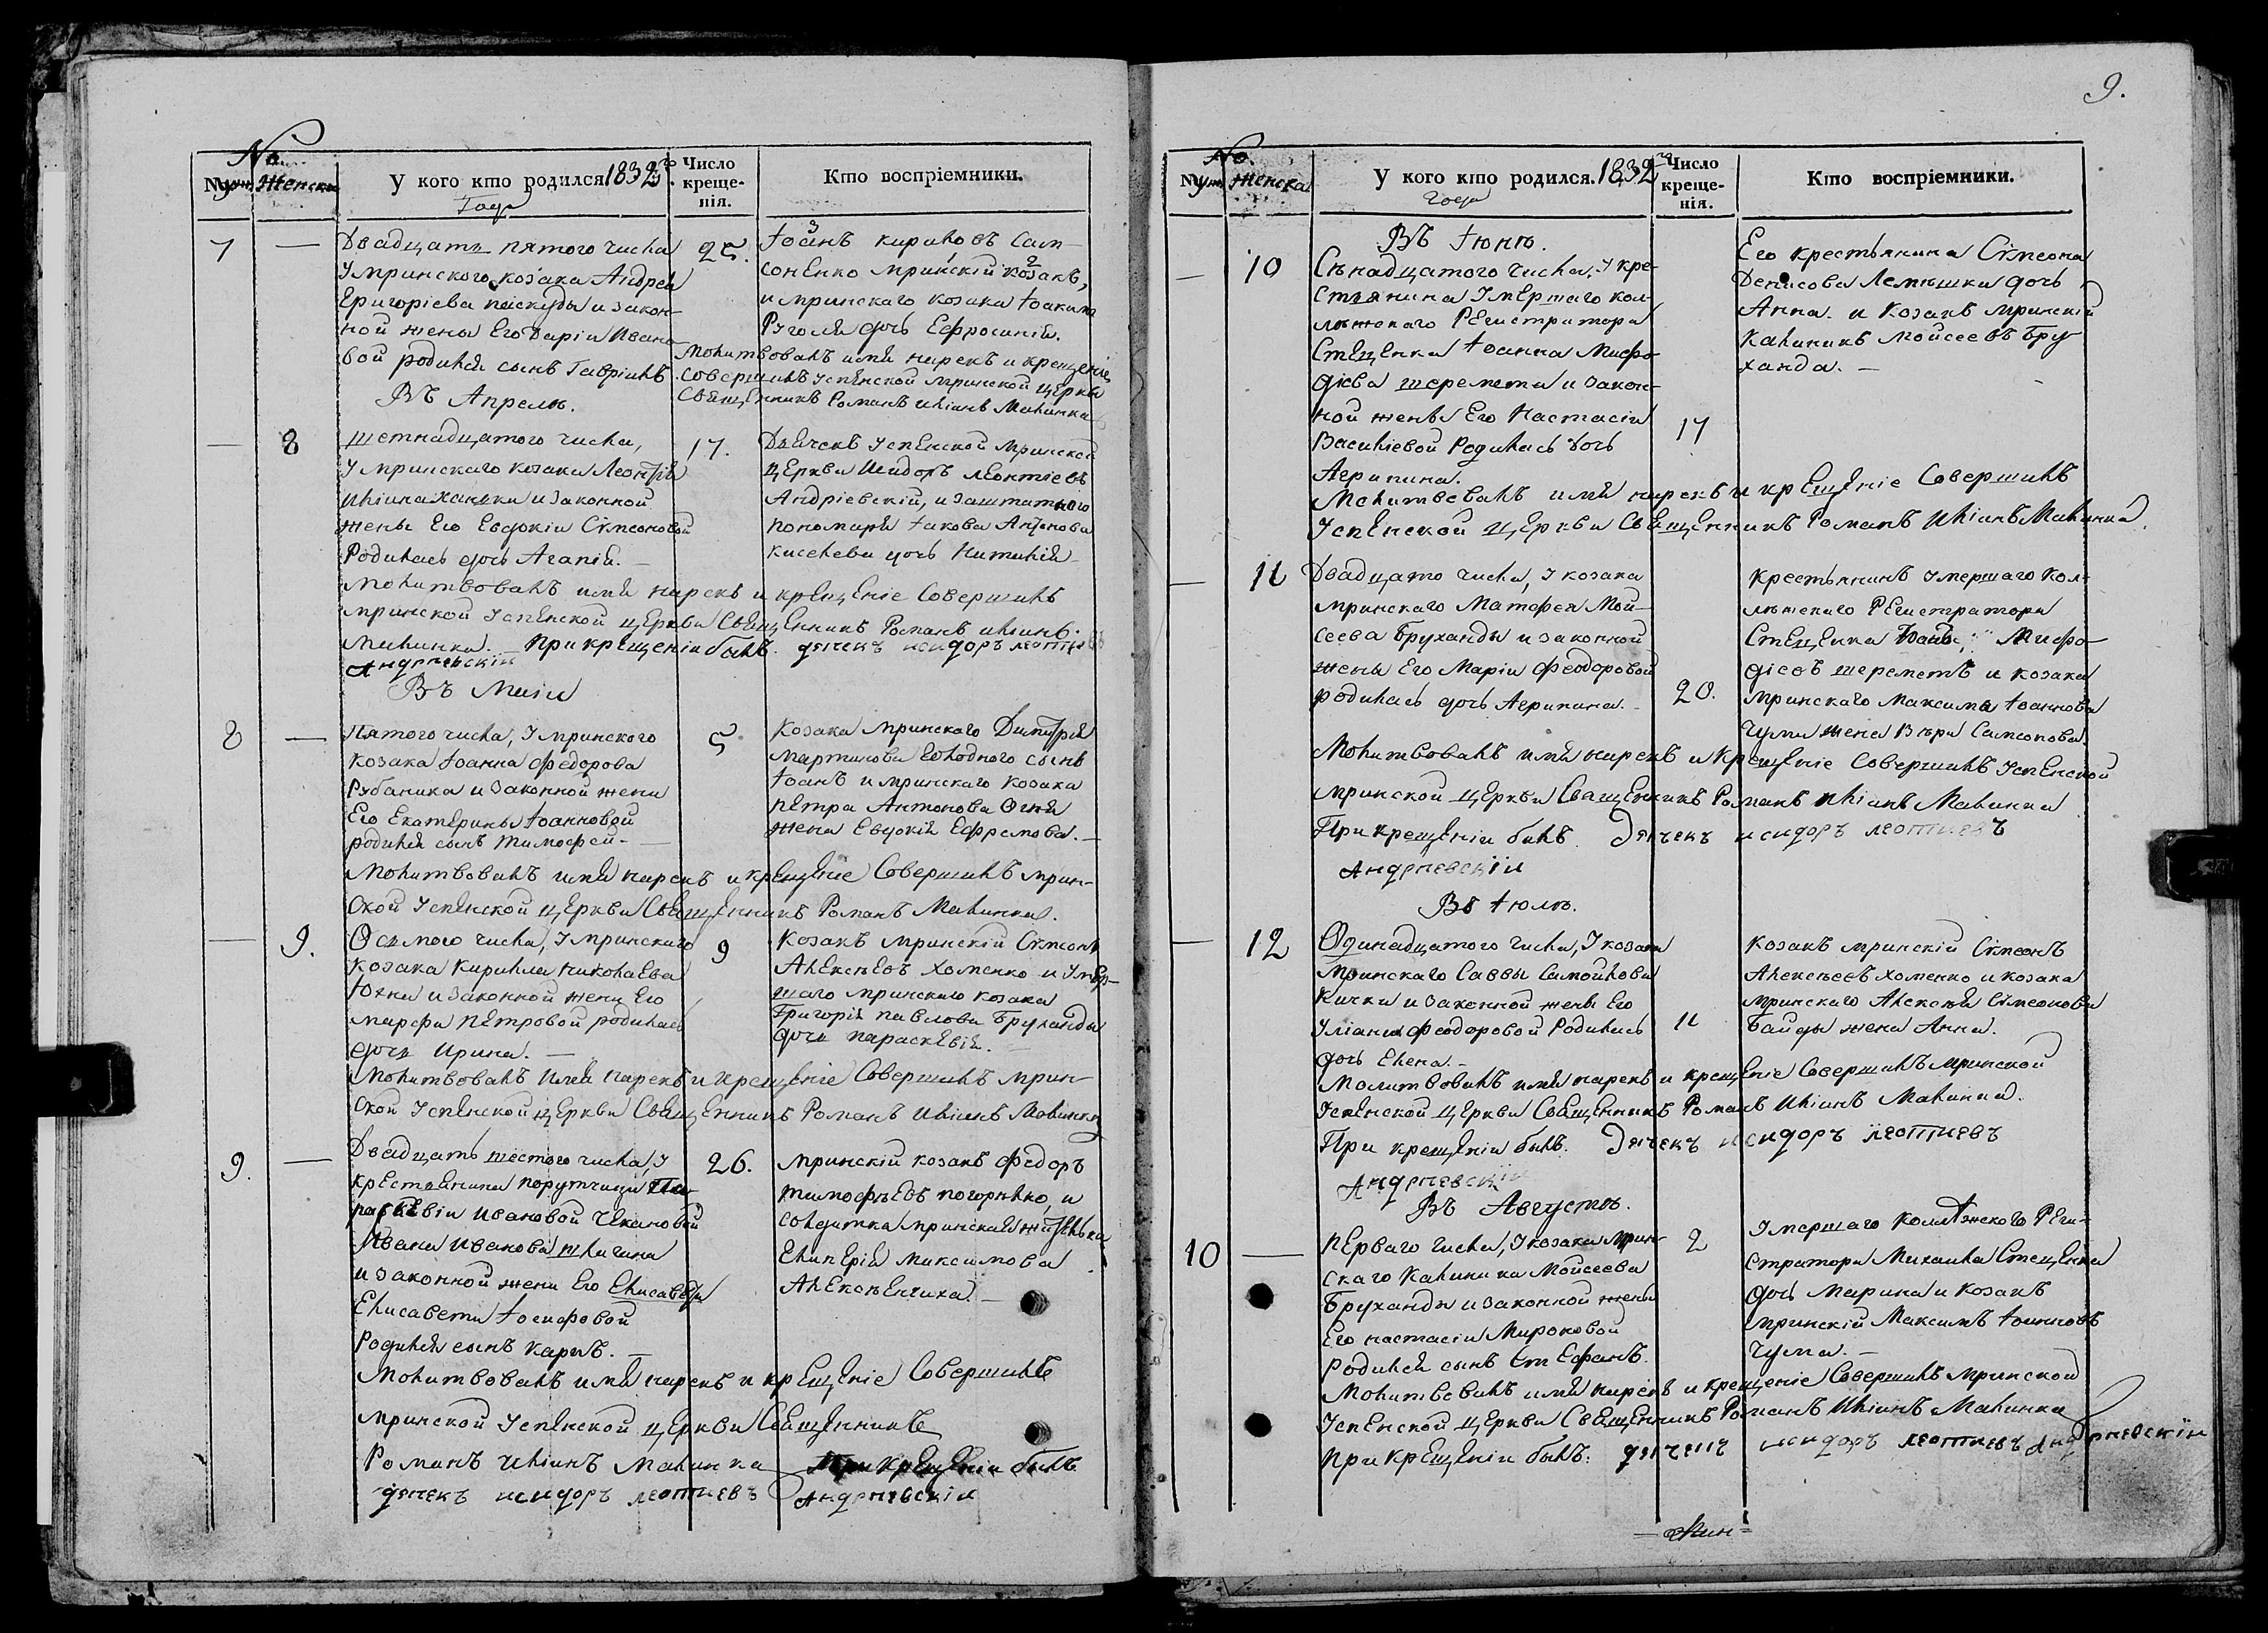 No
Муж. Женска
У кого кто родился 1832го
Года
Число
креще-
нія.
Кто воспріемники.
7 —
Двадцать пятого числа
У мринского козака Андрея
Григоріева Паскуды и закон-
ной жены Его Даріи Ивано-
вой родился сынъ Гавріилъ.
25.
Іоанъ Кириловъ Сам-
соненко мринскій козакъ,
и мринскаго козака Іоакима
Руголя дочь Ефросинія.
Молитвовалъ имя нарекъ и крещеніе
совершилъ Успенской мринской церкви
Священникъ Романъ Иліинъ Малинка
Въ Апреле.
— 8
Шетнадцатого числа,
У мринскаго козака Леонтія
Иліина и законной
жены Его Евдокіи Сѵмеоновой
Родилась дочь Агапія. —
17.
Дьячекъ Успенской Мринской
церкви Исидоръ Леонтіевъ
Андріевскій, и заштатного
пономаря Іакова Антонова
Киселева дочь Наталія
Молитвовалъ имя нарекъ и крещеніе Совершилъ
мринской Успенской церкви Священникъ Романъ Иліинъ
Малинка. При крещеніи былъ. дячекъ исидоръ леонтиевъ
Андриевскій
Въ Маіи
8 —
Пятого числа, У мринского
козака Іоанна Федорова
Рубаника и законной жены
Его Екатерины Іоанновой
родился сынъ Тимофей. —
5
Козака мринскаго Димитрія
Мартинова Солодного сынъ
Іоанъ и мринскаго козака
Петра Антонова Огня
жена Евдокія Ефремова. —
Молитвовалъ имя нарекъ и крещеніе Совершилъ мрин-
ской Успенской церкви Священникъ Романъ Малинка.
— 9.
Осьмого числа, У мринскаго
козака Кирилла Николаева
Юхна и законной жены Его
Марфы Петровой родилась
дочь Ирина. —
9
Козакъ мринскій Сѵмеонъ
Алексѣевъ Хоменко и Умер-
шаго мринскаго козака
Григорія Павлова Бруханды
дочь Параскевія. —
Молитвовалъ Имя нарекъ и крещеніе Совершилъ мрин-
ской Успенской церкви Священникъ Романъ Иліинъ Малинка
9. —
Двадцать шестого числа, У
крестьянина порутчици Па-
раскевіи Ивановой Чекановой
Ивана Иванова Шлигина
и законной жены Его Елисавеѳы
Елисаветы Іосифовой
Родился сынъ Карпъ. —
26.
Мринскій козакъ Федоръ
Тимофѣевъ Погорѣлко, и
солдатка мринская жителька
Еликерія Максимова
Алексѣенчиха. —
Молитвовалъ имя нарекъ и крещеніе Совершилъ
мринской Успенской церкви Священникъ
Романъ Иліинъ Малинка При крещеніи былъ
дячекъ исидоръ леонтиевъ Андриевскій
9.
No.
Муж Женска
У кого кто родился. 1832го
Года
Число
креще-
нія.
Кто воспріемники.
Въ Іюнѣ.
— 10
Сѣнадцатого числа, У кре-
стьянина Умершаго кол-
лѣжскаго Регистратора
Стеценка Іоанна Мефо-
діева Шеремета и закон-
ной жены Его Настасіи
Василіевой Родилась дочь
Агрипина.
17
Его крестьянина Сѵмеона
Денисова Лемешка дочь
Анна. и Козакъ мринскій
Калиникъ Мойсеевъ Бру
ханда. —
Молитвовалъ имя нарекъ и крещеніе Совершилъ
Успенской церкви Священникъ Романъ Иліинъ Малинка.
— 11
Двадцато числа, У козака
мринскаго Матфея Мой-
сеева Бруханды и законной
жены Его Маріи Феодоровой
родилась дочь Агрипина. —
20.
Крестьянинъ Умершаго кол-
лѣжскаго Регистратора
Стеценка Іоанъ Мефо-
діевъ Шереметъ и козака
мринскаго Максима Іоаннова
Чумы жена Вѣра Самсонова.
Молитвовалъ имя нарекъ и крещеніе Совершилъ Успенской
мринской церкви Священникъ Романъ Иліинъ Малинка
При крещеніи былъ. Дячекъ исидоръ леонтиевъ
Андриевскій
Въ Іюлѣ.
— 12
Одинадцатого числа, У козака
мринскаго Саввы Самойлова
Кички и законной жены Его
Уліаны Феодоровой Родилась
дочь Елена. —
11
Козакъ мринскій Сѵмеонъ
Алексѣевъ Хоменко и козака
мринскаго Алексѣя Сѵмеонова
Байды жена Анна.
Молитвовалъ имя нарекъ и крещеніе Совершилъ мринской
Успенской церкви Священникъ Романъ Иліинъ Малинка.
При крещеніи былъ. Дячекъ исидоръ леонтиевъ
Андриевскій
Въ Августѣ.
10 —
Перваго числа, У козака мрин-
скаго Калиника Мойсеева
Бруханды и законной жены
Его Настасіи Мироновой
Родился сынъ Стефанъ.
2
Умершаго Коллѣжского Реги-
стратора Михаила Стеценка
дочь Марина и козакъ
мринскій Максимъ Іоанновъ
Чума. —
Молитвовалъ имя нарекъ и крещеніе Совершилъ мринской
Успенской церкви Священникъ Романъ Иліинъ Малинка
При крещеніи былъ: дячекъ исидоръ леонтиевъ Андриевскій